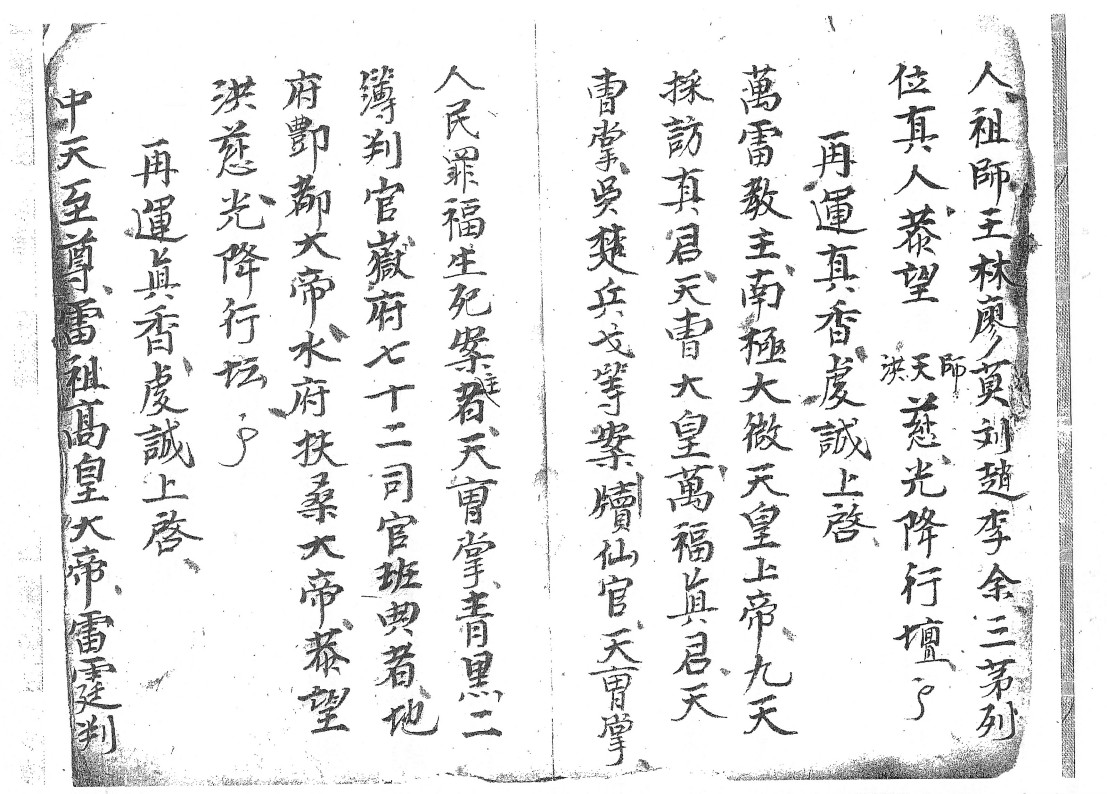 人祖師王林廖莫刘趙李余三苐列
位真人恭望洪天師慈光降行壇
再運真香虔誠上啓
萬雷教主南極大微天皇上帝九天
採訪真君天曹大皇萬福眞君天
曹掌吳楚兵戈等案牘仙官天曺掌
人民罪福生死案主者天曺掌青黑二
簿判官嶽府七十二司官班典者地
府酆都大帝水府扶桑大帝恭望
洪慈光降行坛
再運眞香虔誠上啓
中天至尊雷祖髙皇大帝雷霆判